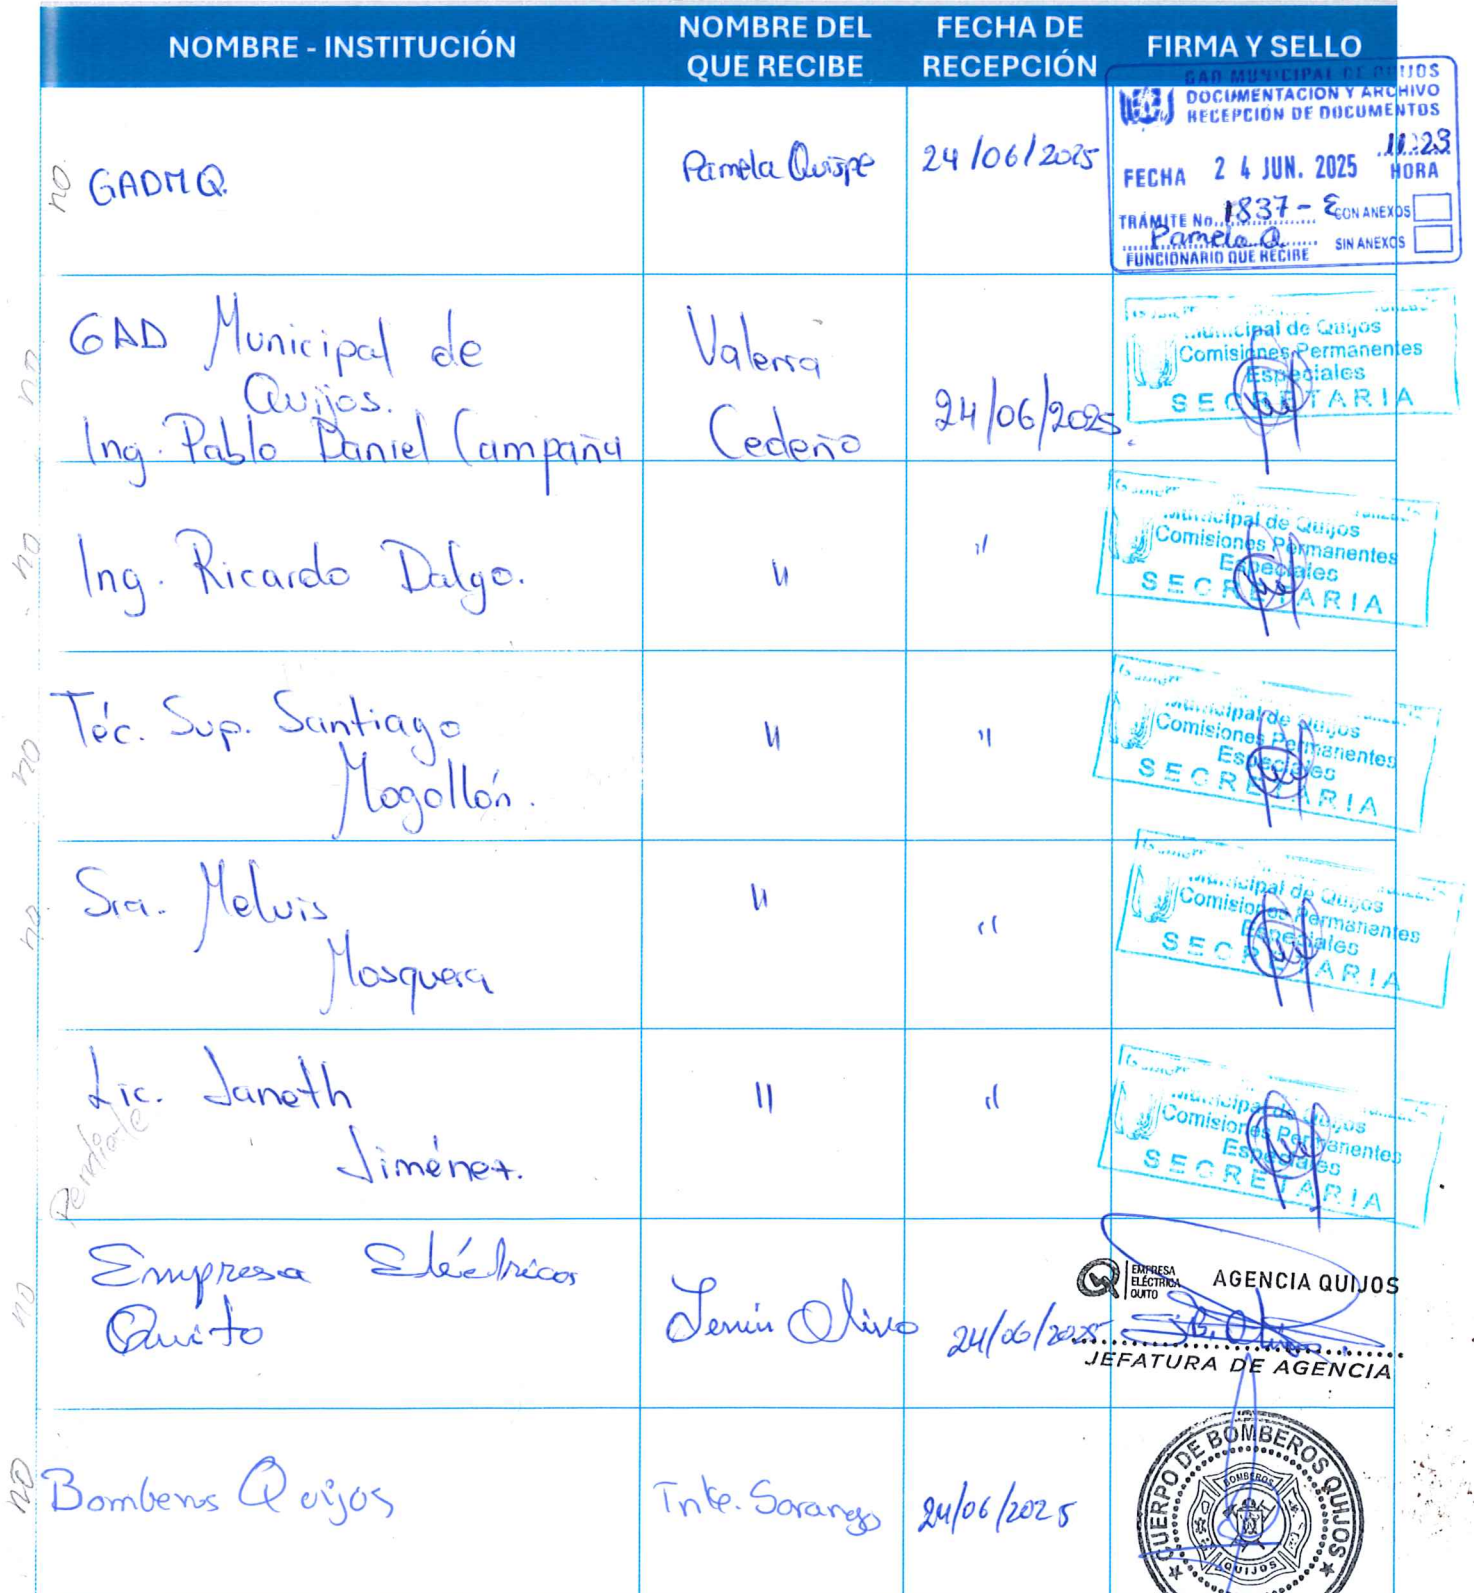 NOMBRE - INSTITUCIÓN
NOMBRE DEL
QUE RECIBE
FECHA DE
RECEPCIÓN
FIRMA Y SELLO
no
GADMQ.
Pamela Quispe
24/06/2025
GAD MUNICIPAL DE QUIJOS
DOCUMENTACIÓN Y ARCHIVO
RECEPCIÓN DE DOCUMENTOS
11:23
FECHA 24 JUN. 2025 HORA
TRÁMITE No. 1837 - E CON ANEXOS
Pamela Q. SIN ANEXOS
FUNCIONARIO QUE RECIBE
no
GAD Municipal de
Quijos.
Ing. Pablo Daniel Campaña
Valeria
Cedeño
24/06/2025.
Municipal de Quijos
Comisiones Permanentes
Especiales
SECRETARIA
no
Ing. Ricardo Dalgo.
"
"
Municipal de Quijos
Comisiones Permanentes
Especiales
SECRETARIA
no
Téc. Sup. Santiago
Mogollón.
"
"
Municipal de Quijos
Comisiones Permanentes
Especiales
SECRETARIA
no
Sra. Melvis
Mosquera
"
"
Municipal de Quijos
Comisiones Permanentes
Especiales
SECRETARIA
Pendiente
Lic. Janeth
Jiménez.
"
"
Municipal de Quijos
Comisiones Permanentes
Especiales
SECRETARIA
no
Empresa Eléctrica
Quito
Lenin Olivo
24/06/2025
EMPRESA
ELÉCTRICA
QUITO
AGENCIA QUIJOS
JEFATURA DE AGENCIA
no
Bomberos Quijos
Tnte. Sarango
24/06/2025
CUERPO DE BOMBEROS QUIJOS
BOMBEROS
QUIJOS